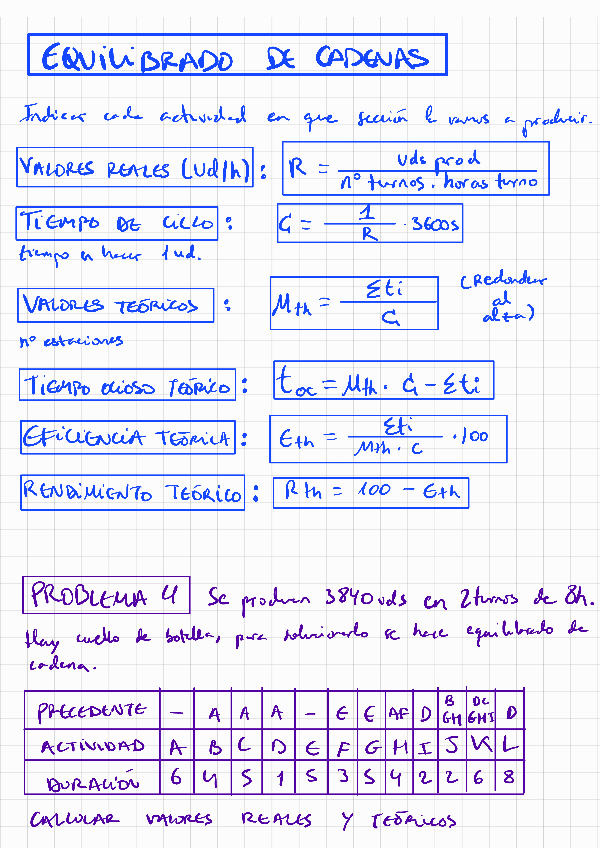 EQUILIBRADO DE CADENAS
Indicar cada actividad en que sección la vamos a producir.
VALORES REALES (Ud/h): R = Uds prod / nº turnos · horas turno
TIEMPO DE CICLO: C = 1 / R · 3600s
tiempo en hacer 1 ud.
VALORES TEÓRICOS: Mth = Σti / C (Redondear al alza)
nº estaciones
TIEMPO OCIOSO TEÓRICO: toc = Mth · C - Σti
EFICIENCIA TEÓRICA: Eth = Σti / Mth · C · 100
RENDIMIENTO TEÓRICO: Rth = 100 - Eth
PROBLEMA 4 Se producen 3840 uds en 2 turnos de 8h.
Hay cuello de botella, para solucionarlo se hace equilibrado de
cadena.
PRECEDENTE - A A A - E E AF D BGH DCGHI D
ACTIVIDAD A B C D E F G H I J K L
DURACIÓN 6 4 5 1 5 3 5 4 2 2 6 8
CALCULAR VALORES REALES Y TEÓRICOS